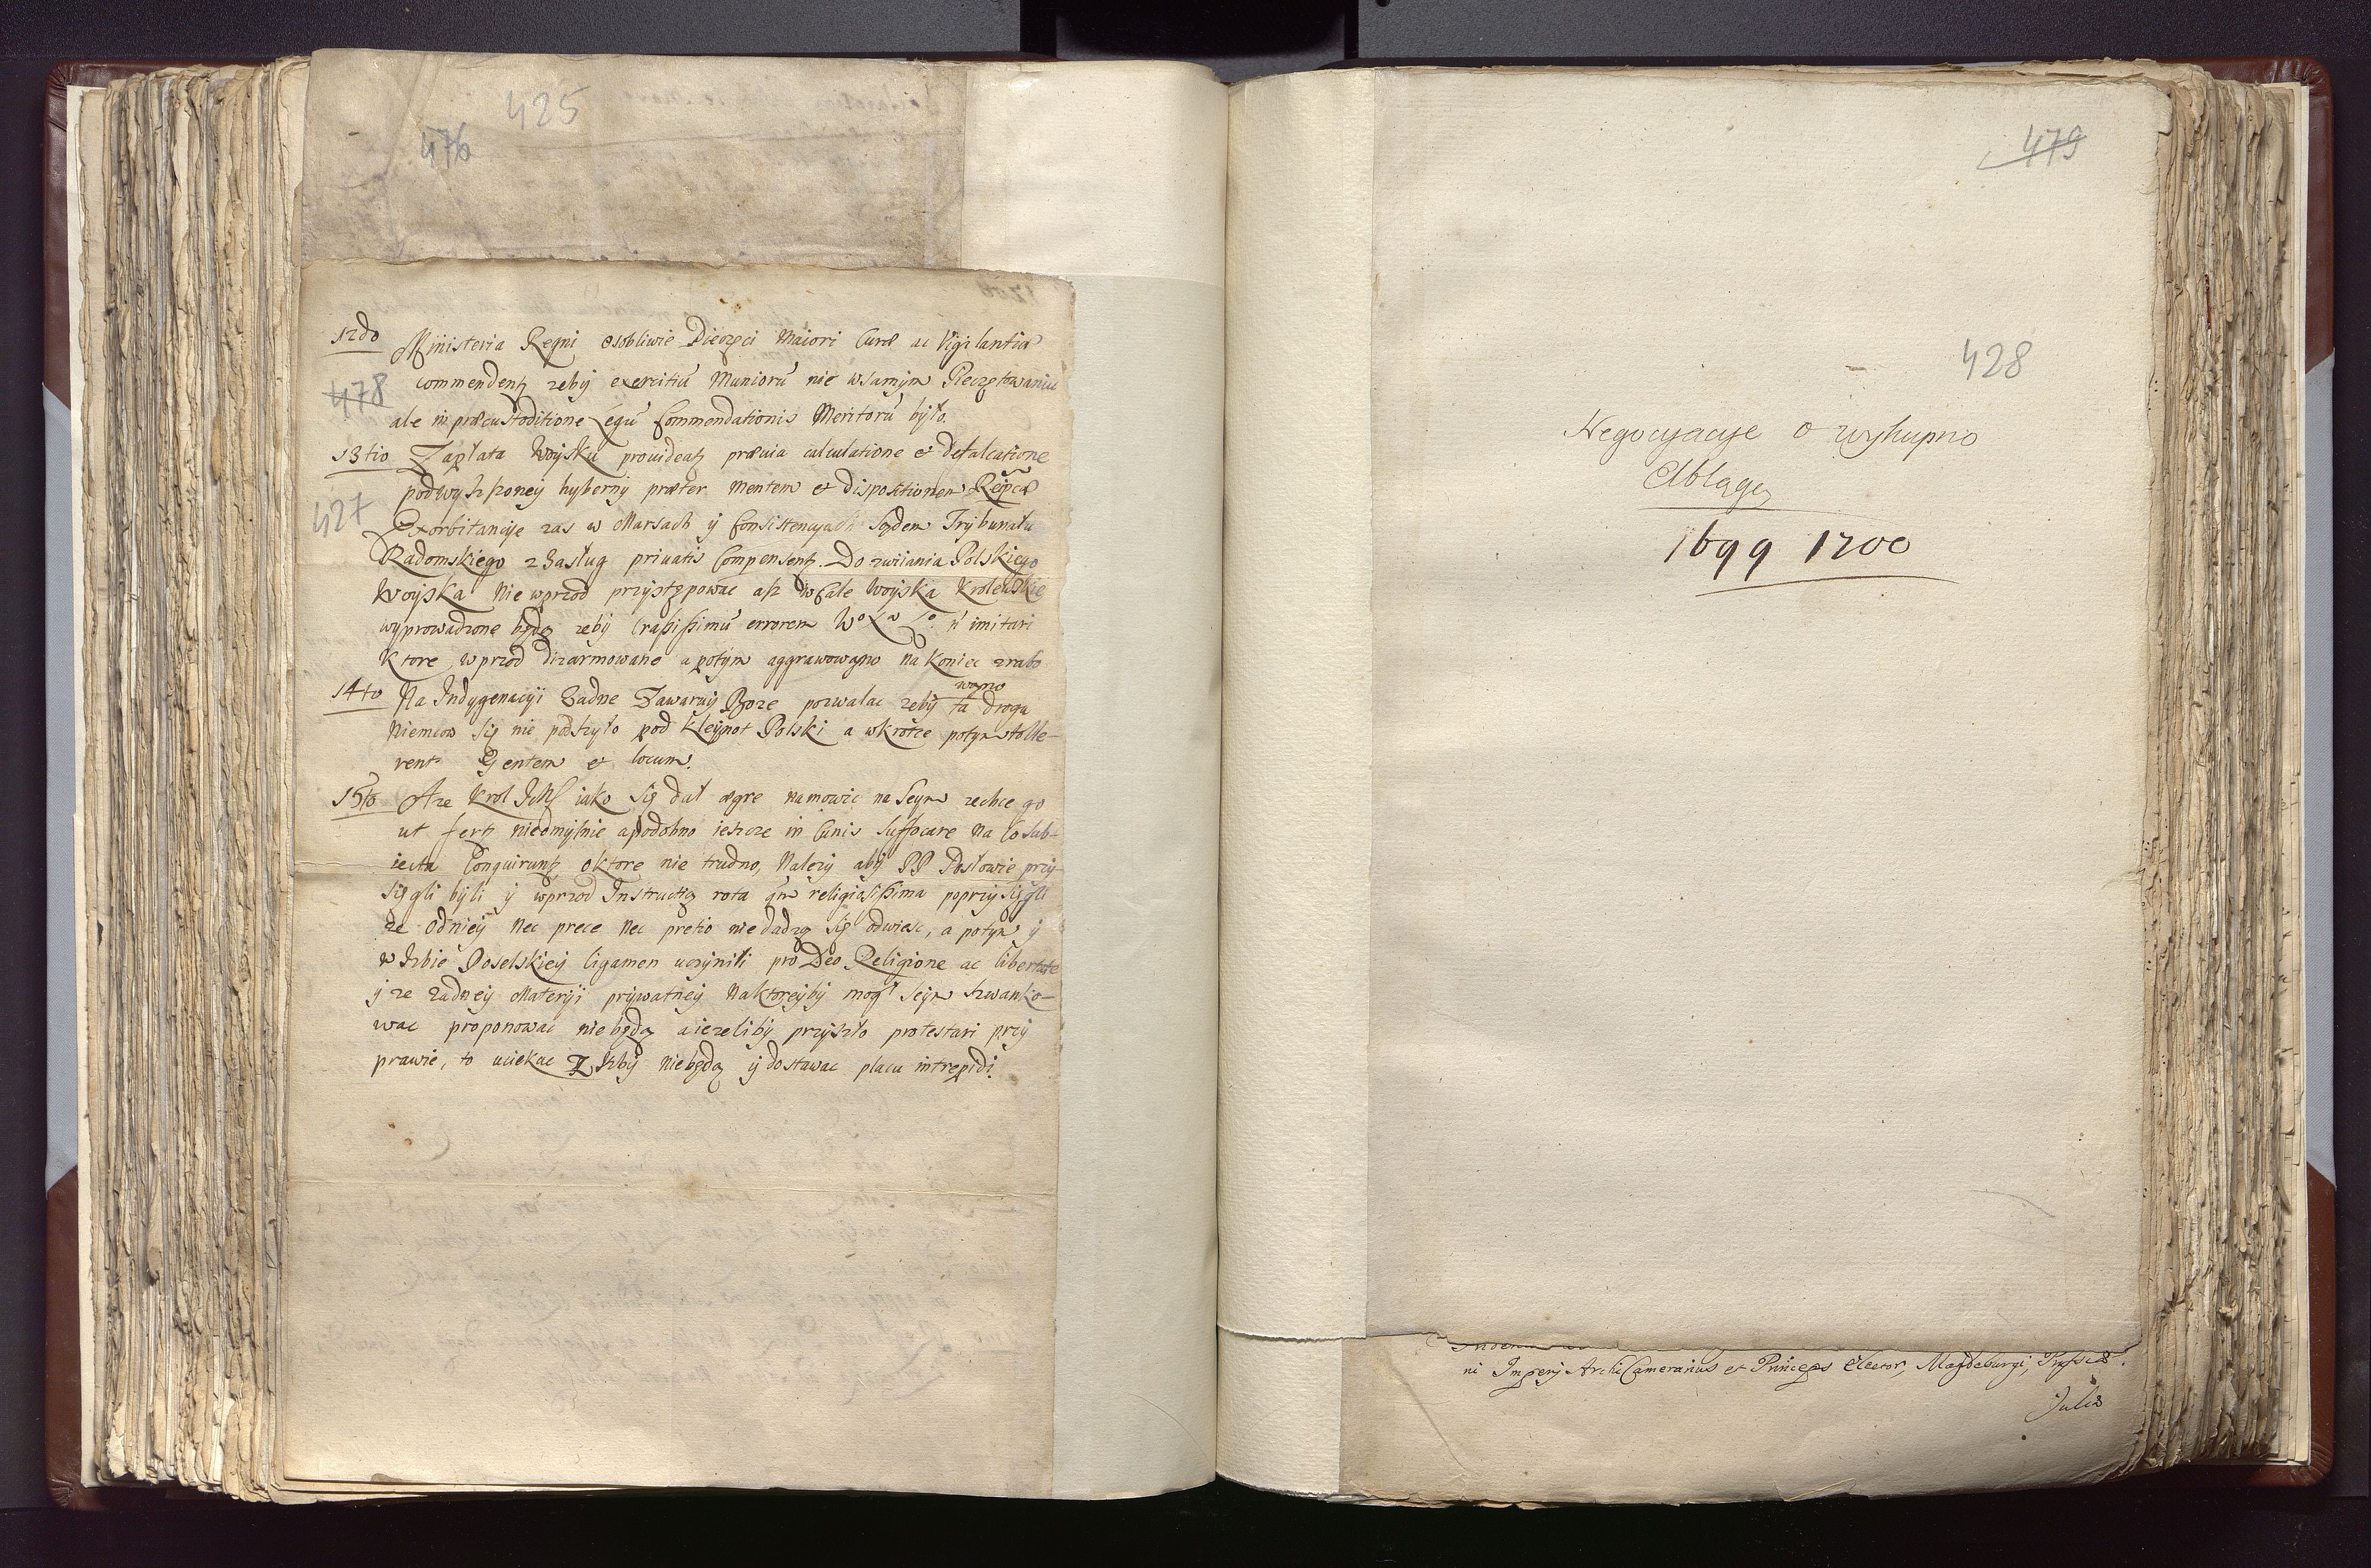 425
476
12do Ministeria Regni osobliwie Pieczęci Maiori Curæ ac Vigilantiæ
478
commendent zeby exercitiu Munioru nie wsamym Pieczętowaniu
ale in præcustoditione Legu Commendationis Meritoru było.
13tio Zapłata Woysku prouideat prævia calculatione et defalcatione
podwyszszoney hyberny præter mentem et dispositionem Reipcæ
427
Exorbitancye zas w Marsach y Consistencyach Sądem Trybunału
Radomskiego z Zasług priuatis Compensent. Do zwiiania Polskiego
Woyska nie wprzod przystępowac asz wcale Woyska Krolewskie
wyprowadzone będą zeby Crassissimu errorem imitari
Ktore wprzod dizarmowane a potym aggrawowano na koniec zrabo
wano
14to Na Indygenacyi Zadne Zawaruy Boze pozwalac zeby ta droga
Niemcow się nie podszyło pod kleynot Polski a wkrotce potym tolle-
rent Gentem et locum.
15to A ze Krol JchMś iako się dał ægre namowic na Seym zechce go
ut fert nieomylnie a podobno ieszcze in Cunis suffocare na co sub-
iecta Conquirunt, oktore nie trudno, Nalezy aby PP Posłowie przy-
sięgli byli y wprzod Instructią rota qm religiosissima poprzysięgli
ze odniey nec prece nec pretio niedadzą się odwiesc, a potym y
w Izbie Poselskiey ligamen uczynili pro Deo Religione ac libertate
y ze zadney Materyi prywatney naktoreyby mogł Seym szwanko-
wac proponowac niebędą aiezeliby przyszło protestari przy
prawie, to uciekac z Izby niebędą y dostawac placu intrepidi.
479
428
Negocyacye o wykupno
Elbląga
1699 1700
ni Imperij Archi Camerarius et Princeps Elector, Magdeburgi, Prussiæ.
Juliæ